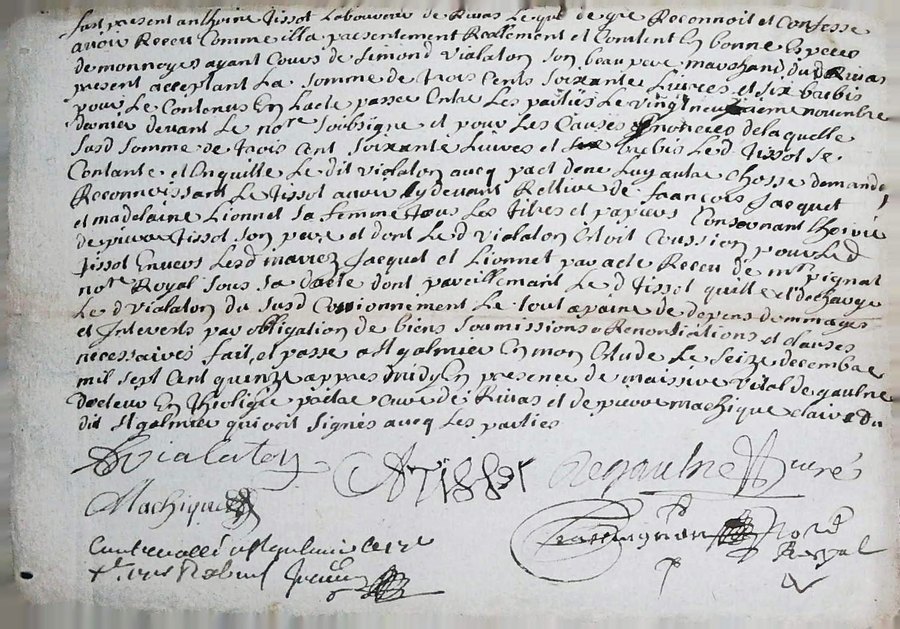 fust present anthoine Tissot Laboureur de Rivas Lequel de gre Reconnoit et Confesse
avoir Receu Comme illa presentement Reallement et Contant En bonne Espece
de monnoyes ayant Cours de Simond Vialaton Son beau pere marchand dud Rivas
present acceptant La Somme de trois Cents Soixante Livres et six brebis
pour Le Contenus En Lacte passer Entre Les partiis Le Vingt neufvieme novembre
dernier devant Le nore Soubsigne et pour Les Causes y notrees de laquelle
Susd Somme de trois Cent Soixante Livres et six brebis Led Tissot Se
Contante et Enquitte Le dit Vialaton avecq pact de ne Luy autre Chosse demande
Reconnoissant Le Tissot avoir Cy devant Rettire de francois Jacquet
et madelaine Lionnet Sa femme tous Les titres et papiers Consernant Lhoirie
de pierre Tissot Son pere et dont Led Vialaton Estoit Coussion pour Led
Tissot Envers Lesd mariez Jacquet et Lionnet par acte Receu de me pignat
notre Royal Sous Sa datte dont pareillemant Le d Tissot quitte et descharge
Le d Vialaton du Susd Cautionnement Le tout a paine de depens dommages
et Interests par obligation de biens Soumissions Renontiations et clauses
necessaires fait et passe a St galmier En mon Estude Le Seize decembre
mil Sept Cent quinze appres midy En presence de maissire Vital de gaulne
docteur En Thiologie pretre Cure de Rivas et de pierre machique clair du
dit St galmier qui ont Signes avecq Les parties
Vialaton ATissot Degaulne Cure
Machique
Nore Royal
Controlle a St galmier Le